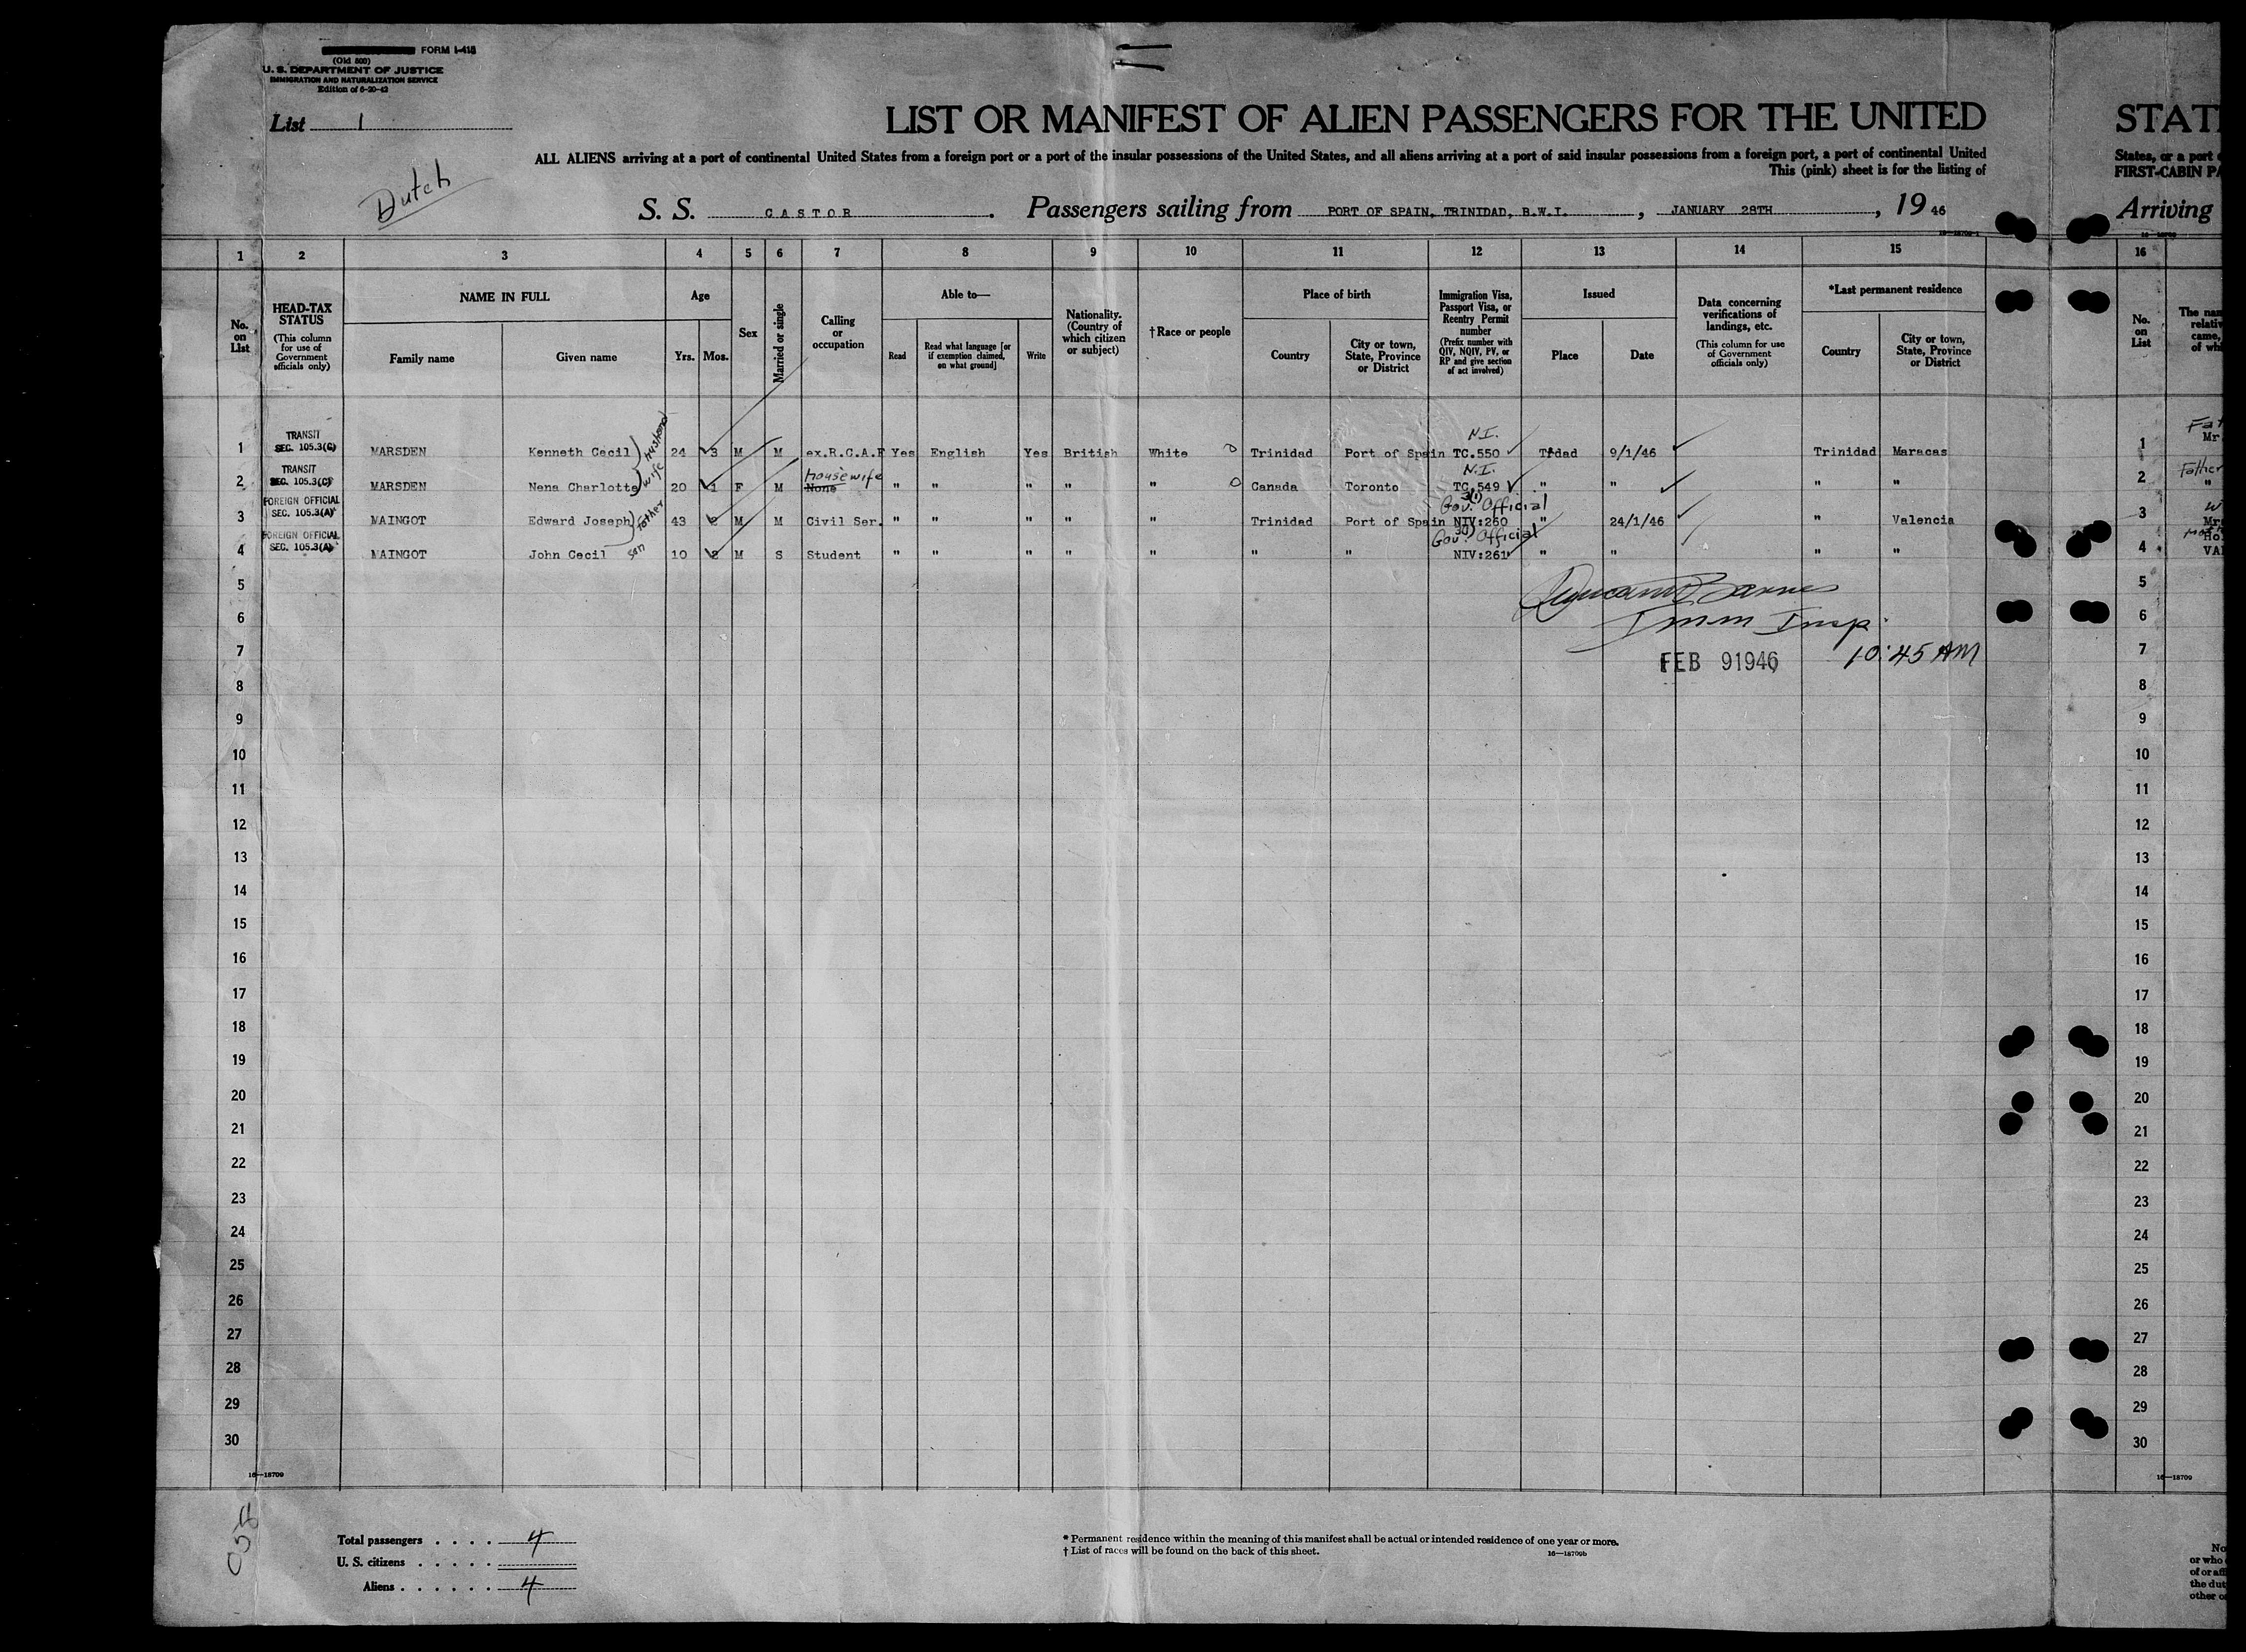 FORM I-418
(Old 500)
U. S. DEPARTMENT OF JUSTICE
IMMIGRATION AND NATURALIZATION SERVICE
Edition of 6-20-42
List 1
Dutch
LIST OR MANIFEST OF ALIEN PASSENGERS FOR THE UNITED
ALL ALIENS arriving at a port of continental United States from a foreign port or a port of the insular possessions of the United States, and all aliens arriving at a port of said insular possessions from a foreign port, a port of continental United
This (pink) sheet is for the listing of
S. S. CASTOR. Passengers sailing from PORT OF SPAIN, TRINIDAD, B.W.I., JANUARY 28TH, 19 46
1 2 3 4 5 6 7 8 9 10 11 12 13 14 15
No. on List
HEAD-TAX STATUS
(This column for use of Government officials only)
NAME IN FULL
Family name
Given name
Age
Yrs. Mos.
Sex
Married or single
Calling or occupation
Able to—
Read
Read what language [or if exemption claimed, on what ground]
Write
Nationality. (Country of which citizen or subject)
†Race or people
Place of birth
Country
City or town, State, Province or District
Immigration Visa, Passport Visa, or Reentry Permit number
(Prefix number with QIV, NQIV, PV, or RP and give section of act involved)
Issued
Place
Date
Data concerning verifications of landings, etc.
(This column for use of Government officials only)
*Last permanent residence
Country
City or town, State, Province or District
1 TRANSIT SEC. 105.3(C) MARSDEN Kenneth Cecil) husband 24 3 M M ex.R.C.A.F Yes English Yes British White Trinidad Port of Spain N.I. TC.550 Tdad 9/1/46 Trinidad Maracas
2 TRANSIT SEC. 105.3(C) MARSDEN Nena Charlotte) wife 20 1 F M None housewife " " " " " Canada Toronto N.I. TC.549 " " " "
3 FOREIGN OFFICIAL SEC. 105.3(A) MAINGOT Edward Joseph) father 43 2 M M Civil Ser. " " " " " Trinidad Port of Spain 3(1) Gov. Official NIV:260 " 24/1/46 " Valencia
4 FOREIGN OFFICIAL SEC. 105.3(A) MAINGOT John Cecil son 10 2 M S Student " " " " " " " 3(1) Gov. Official NIV:261 " " " "
5
6
7
8
9
10
11
12
13
14
15
16
17
18
19
20
21
22
23
24
25
26
27
28
29
30
Barnes
Imm Insp.
FEB 9 1946 10:45 AM
16—18709
Total passengers . . . . 4
U. S. citizens . . . . .
Aliens . . . . . . 4
* Permanent residence within the meaning of this manifest shall be actual or intended residence of one year or more.
† List of races will be found on the back of this sheet.
16—18709b
STAT
States, or a port
FIRST-CABIN PA
Arriving
16
No. on List
The nam
relativ
came,
of wh
1 Fat Mr
2 Father "
3 W Mrs
4 Ho VA
5
6
7
8
9
10
11
12
13
14
15
16
17
18
19
20
21
22
23
24
25
26
27
28
29
30
16—18709
No
or who
of or aff
the dut
other o